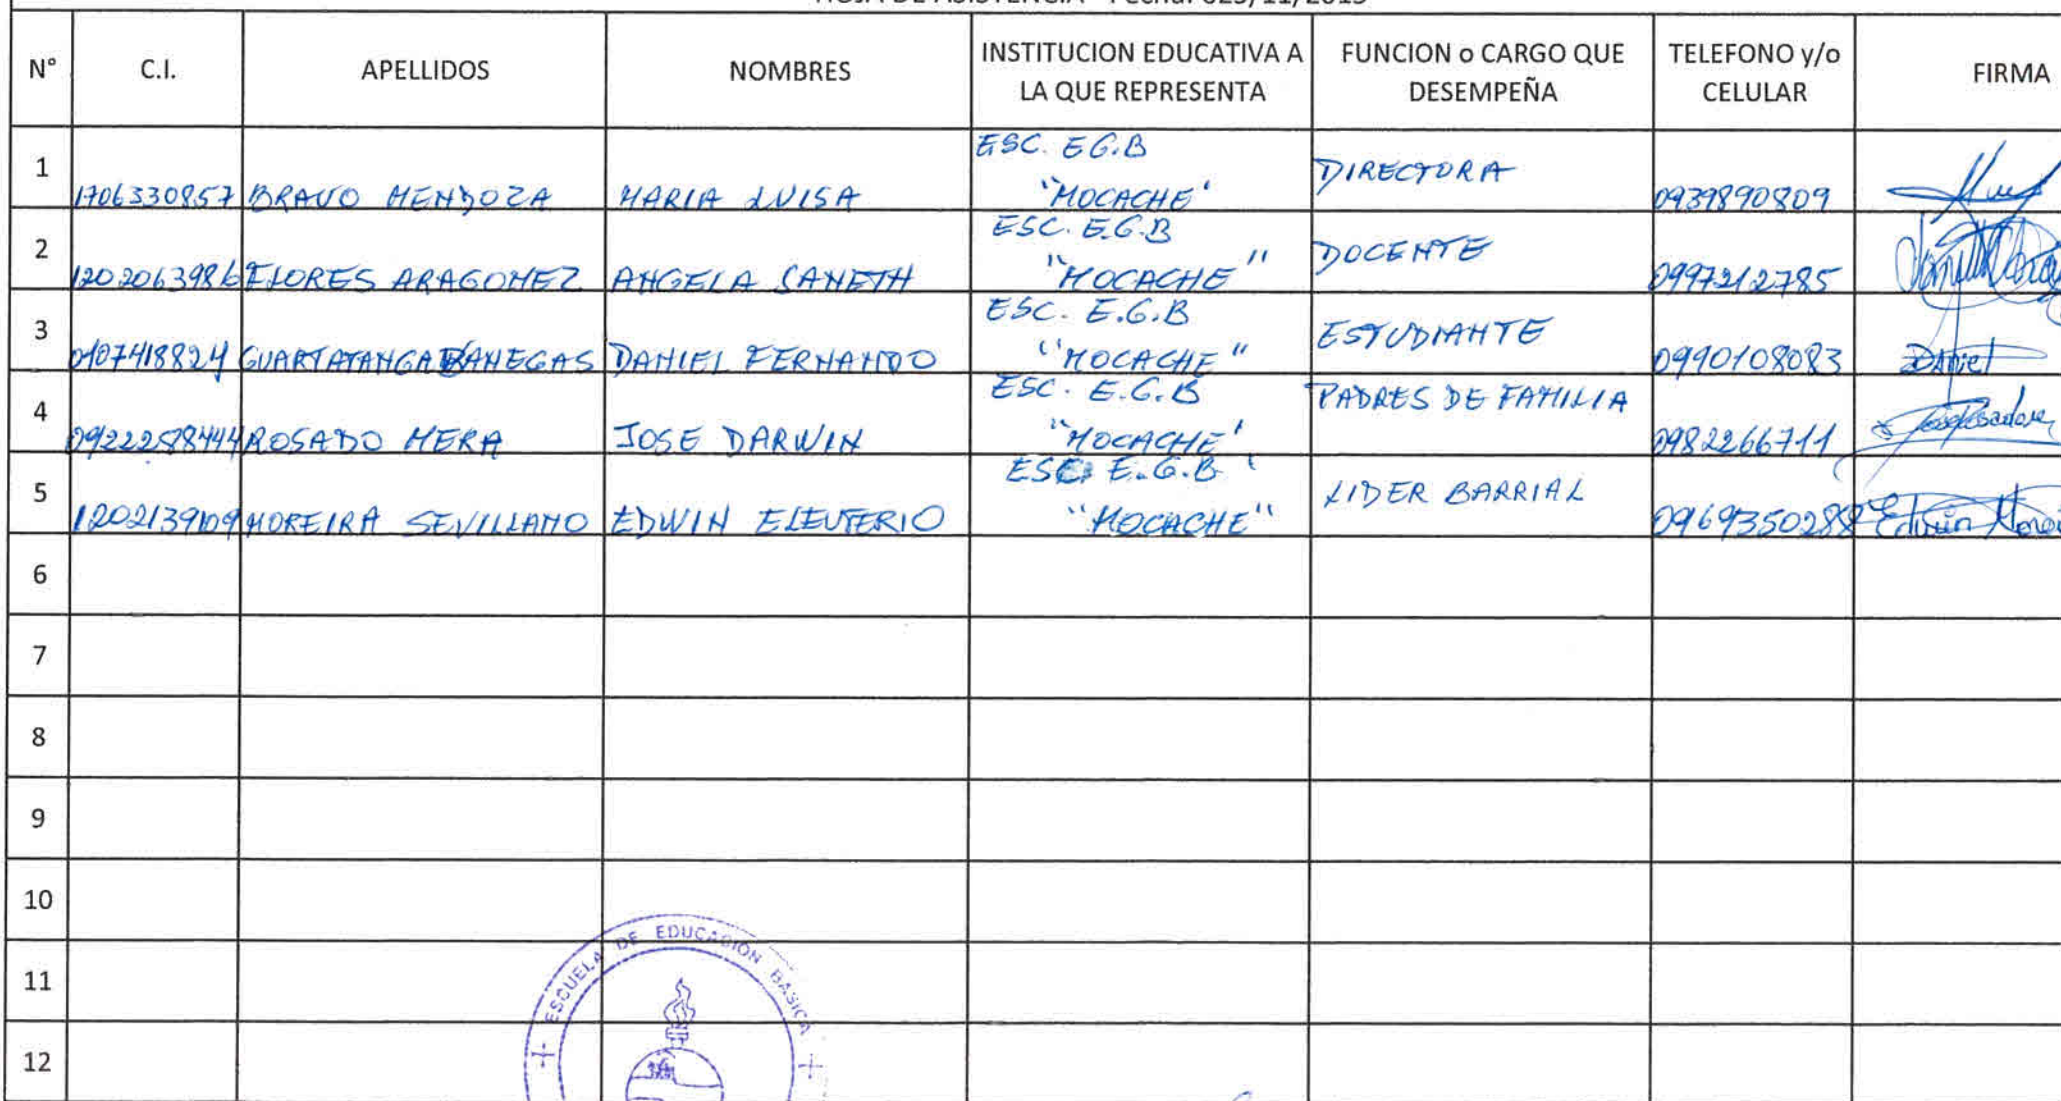 HOJA DE ASISTENCIA - Fecha: 023/11/2015
N° C.I. APELLIDOS NOMBRES INSTITUCION EDUCATIVA A LA QUE REPRESENTA FUNCION o CARGO QUE DESEMPEÑA TELEFONO y/o CELULAR FIRMA
1 1706330857 BRAVO MENDOZA MARIA LUISA ESC. E.G.B "MOCACHE" DIRECTORA 0939890809
2 1202063986 FLORES ARAGONEZ ANGELA JANETH ESC. E.G.B "MOCACHE" DOCENTE 0997212785
3 0107418824 GUARTATANGA BANEGAS DANIEL FERNANDO ESC. E.G.B "MOCACHE" ESTUDIANTE 0990108083 Daniel
4 ROSADO MERA JOSE DARWIN ESC. E.G.B "MOCACHE" PADRES DE FAMILIA 0982266711
5 1202139109 MOREIRA SEVILLANO EDWIN ELEUTERIO ESC. E.G.B "MOCACHE" LIDER BARRIAL 0969350288 Edwin
6
7
8
9
10
11
12
ESCUELA DE EDUCACION BASICA